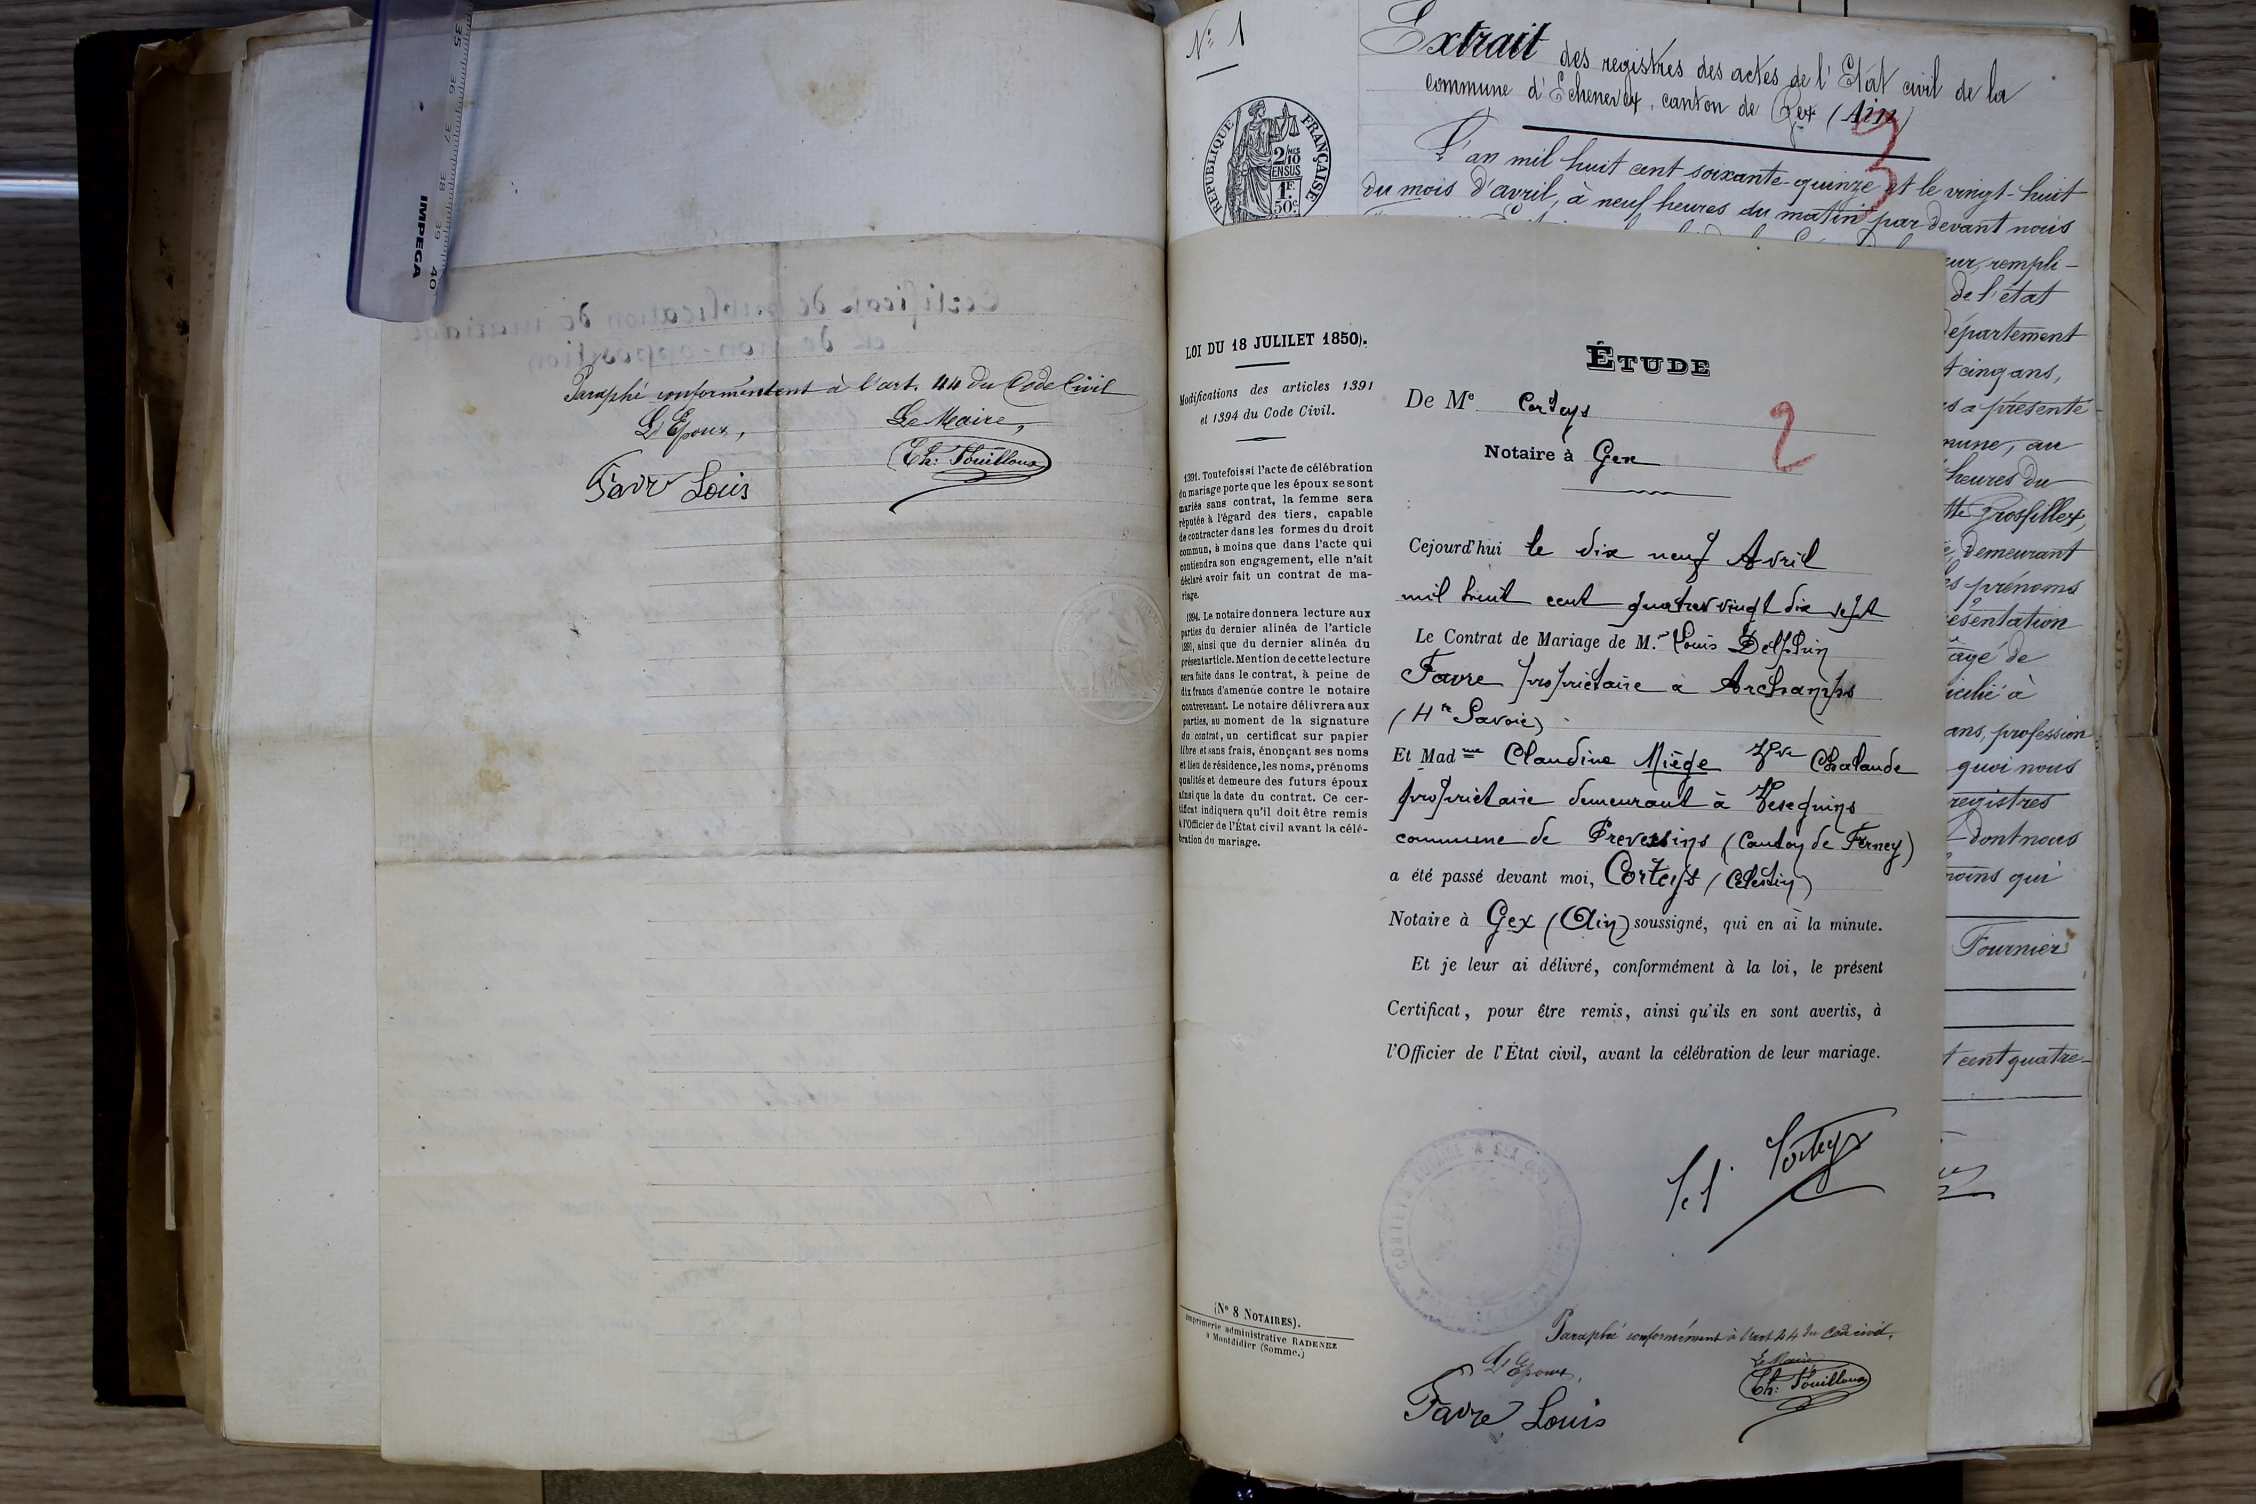 Paraphé conformément à l'art. 44 du Code Civil
L'Epoux,
Le Maire,
Favre Louis
Th: Fouilloux
35 36 37 38 39 40
IMPEGA
No 1
Extrait des registres des actes de l'Etat civil de la
commune d'Echenevex, canton de Gex (Ain)
3
L'an mil huit cent soixante-quinze et le vingt-huit
du mois d'avril, à neuf heures du matin par devant nous
RÉPUBLIQUE FRANÇAISE
2/10
EN SUS
1F.
50c
rempli-
de l'état
département
cinq ans,
présenté
au
heures du
Grosfillex,
demeurant
prénoms
âgé de
à
ans, profession
quoi nous
registres
dont nous
qui
Fournier
cent quatre-
LOI DU 18 JULILET 1850).
Modifications des articles 1391
et 1394 du Code Civil.
1391. Toutefois si l'acte de célébration
du mariage porte que les époux se sont
mariés sans contrat, la femme sera
réputée à l'égard des tiers, capable
de contracter dans les formes du droit
commun, à moins que dans l'acte qui
contiendra son engagement, elle n'ait
déclaré avoir fait un contrat de ma-
riage.
1394. Le notaire donnera lecture aux
parties du dernier alinéa de l'article
1391, ainsi que du dernier alinéa du
présent article. Mention de cette lecture
sera faite dans le contrat, à peine de
dix francs d'amende contre le notaire
contrevenant. Le notaire délivrera aux
parties, au moment de la signature
du contrat, un certificat sur papier
libre et sans frais, énonçant ses noms
et lieu de résidence, les noms, prénoms
qualités et demeure des futurs époux
ainsi que la date du contrat. Ce cer-
tificat indiquera qu'il doit être remis
à l'Officier de l'État civil avant la célé-
bration du mariage.
(No 8 NOTAIRES).
Imprimerie administrative RADENEZ
à Montdidier (Somme.)
ÉTUDE
De Me Corteys
2
Notaire à Gex
Cejourd'hui le dix neuf Avril
mil huit cent quatre vingt dix sept
Le Contrat de Mariage de M.r Louis Delphin
Favre propriétaire à Archamps
(Hte Savoie)
Et Madme Claudine Miège Vve Chalande
propriétaire demeurant à Vesegnins
commune de Prevessins (Canton de Ferney)
a été passé devant moi, Corteys (Célestin)
Notaire à Gex (Ain) soussigné, qui en ai la minute.
Et je leur ai délivré, conformément à la loi, le présent
Certificat, pour être remis, ainsi qu'ils en sont avertis, à
l'Officier de l'État civil, avant la célébration de leur mariage.
Corteys
Paraphé conformément à l'art 44 du Code civil,
L'Epoux,
Le Maire
Favre Louis
Th: Fouilloux